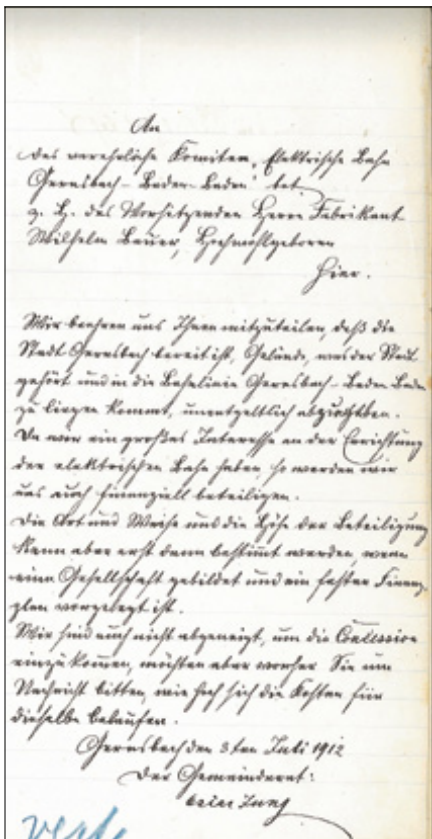 An
das verehrliche Komitee, "Elektrische Bahn
Gernsbach-Baden-Baden"
z. H. des Vorsitzenden Herrn Fabrikant
Wilhelm Bauer, Hochwohlgeboren
Hier.
Wir beehren uns Ihnen mitzuteilen, daß die
Stadt Gernsbach bereit ist, Gelände, was der Stadt
gehört und in die Bahnlinie Gernsbach-Baden-Baden
zu liegen kommt, unentgeltlich abzutreten.
Da wir ein großes Interesse an der Errichtung
der elektrischen Bahn haben, so werden wir
uns auch finanziell beteiligen.
Die Art und Weise und die Höhe der Beteiligung
kann aber erst dann bestimmt werden, wenn
eine Gesellschaft gebildet und ein fester Finanz-
plan vorgelegt ist.
Wir sind auch nicht abgeneigt, um die Concession
einzukommen, möchten aber vorher Sie um
Nachricht bitten, wie hoch sich die Kosten für
dieselbe belaufen.
Gernsbach den 3ten Juli 1912
Der Gemeinderat:
Jung